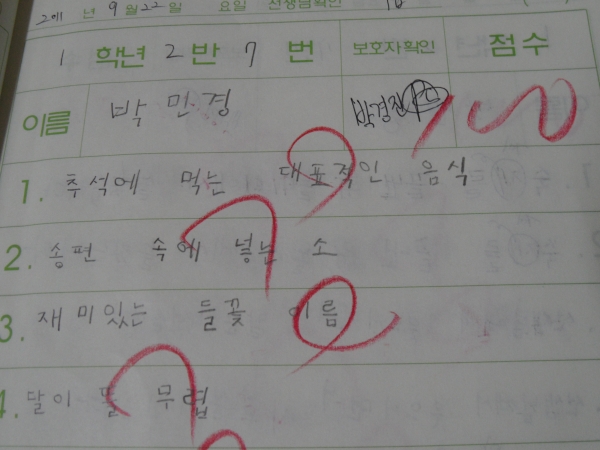 2011 년 9월 22일 요일 선생님확인
1 학년 2 반 7 번 보호자확인 점수
이름 박민경 박경진 100
1. 추석에 먹는 대표적인 음식
2. 송편 속에 넣는 소
3. 재미있는 들꽃 이름
4. 달이 뜰 무렵